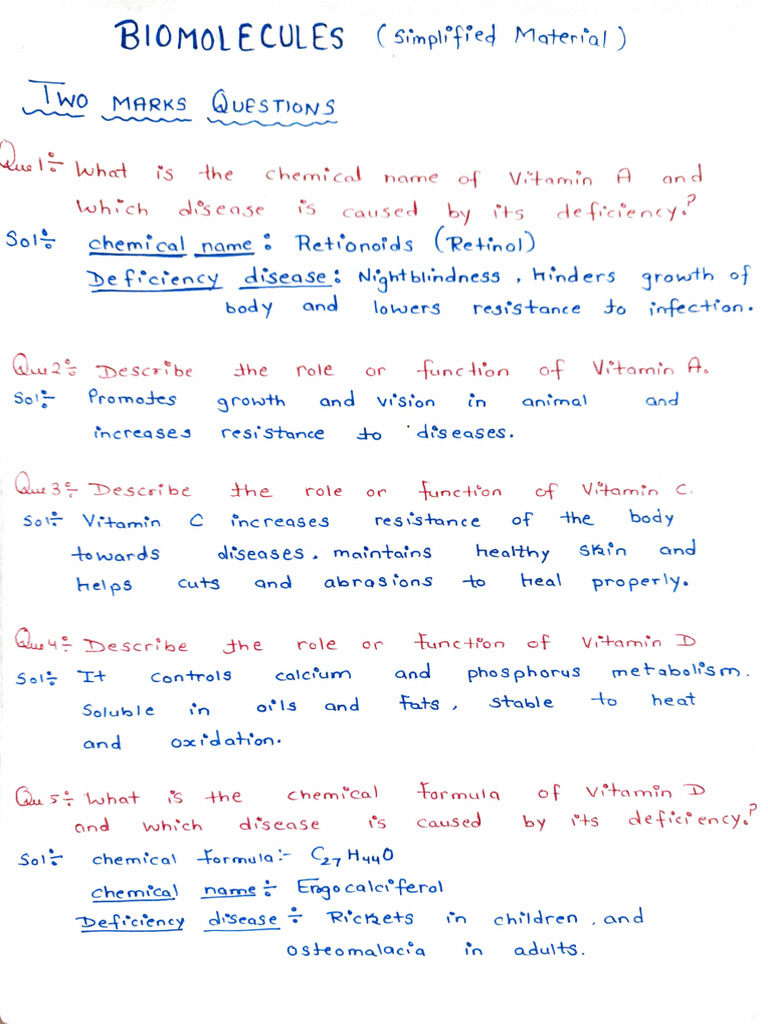 BIOMOLECULES (Simplified Material)
TWO MARKS QUESTIONS
Que1÷ What is the chemical name of Vitamin A and
which disease is caused by its deficiency?
Sol÷ chemical name: Retionoids (Retinol)
Deficiency disease: Nightblindness, Hinders growth of
body and lowers resistance to infection.
Que2÷ Describe the role or function of Vitamin A.
Sol÷ Promotes growth and vision in animal and
increases resistance to diseases.
Que3÷ Describe the role or function of Vitamin C.
Sol÷ Vitamin C increases resistance of the body
towards diseases, maintains healthy skin and
helps cuts and abrasions to heal properly.
Que4÷ Describe the role or function of Vitamin D
Sol÷ It controls calcium and phosphorus metabolism.
Soluble in oils and fats, stable to heat
and oxidation.
Qu5÷ What is the chemical formula of Vitamin D
and which disease is caused by its deficiency?
Sol÷ chemical formula:- C₂₇H₄₄O
chemical name÷ Ergocalciferol
Deficiency disease÷ Rickets in children, and
osteomalacia in adults.